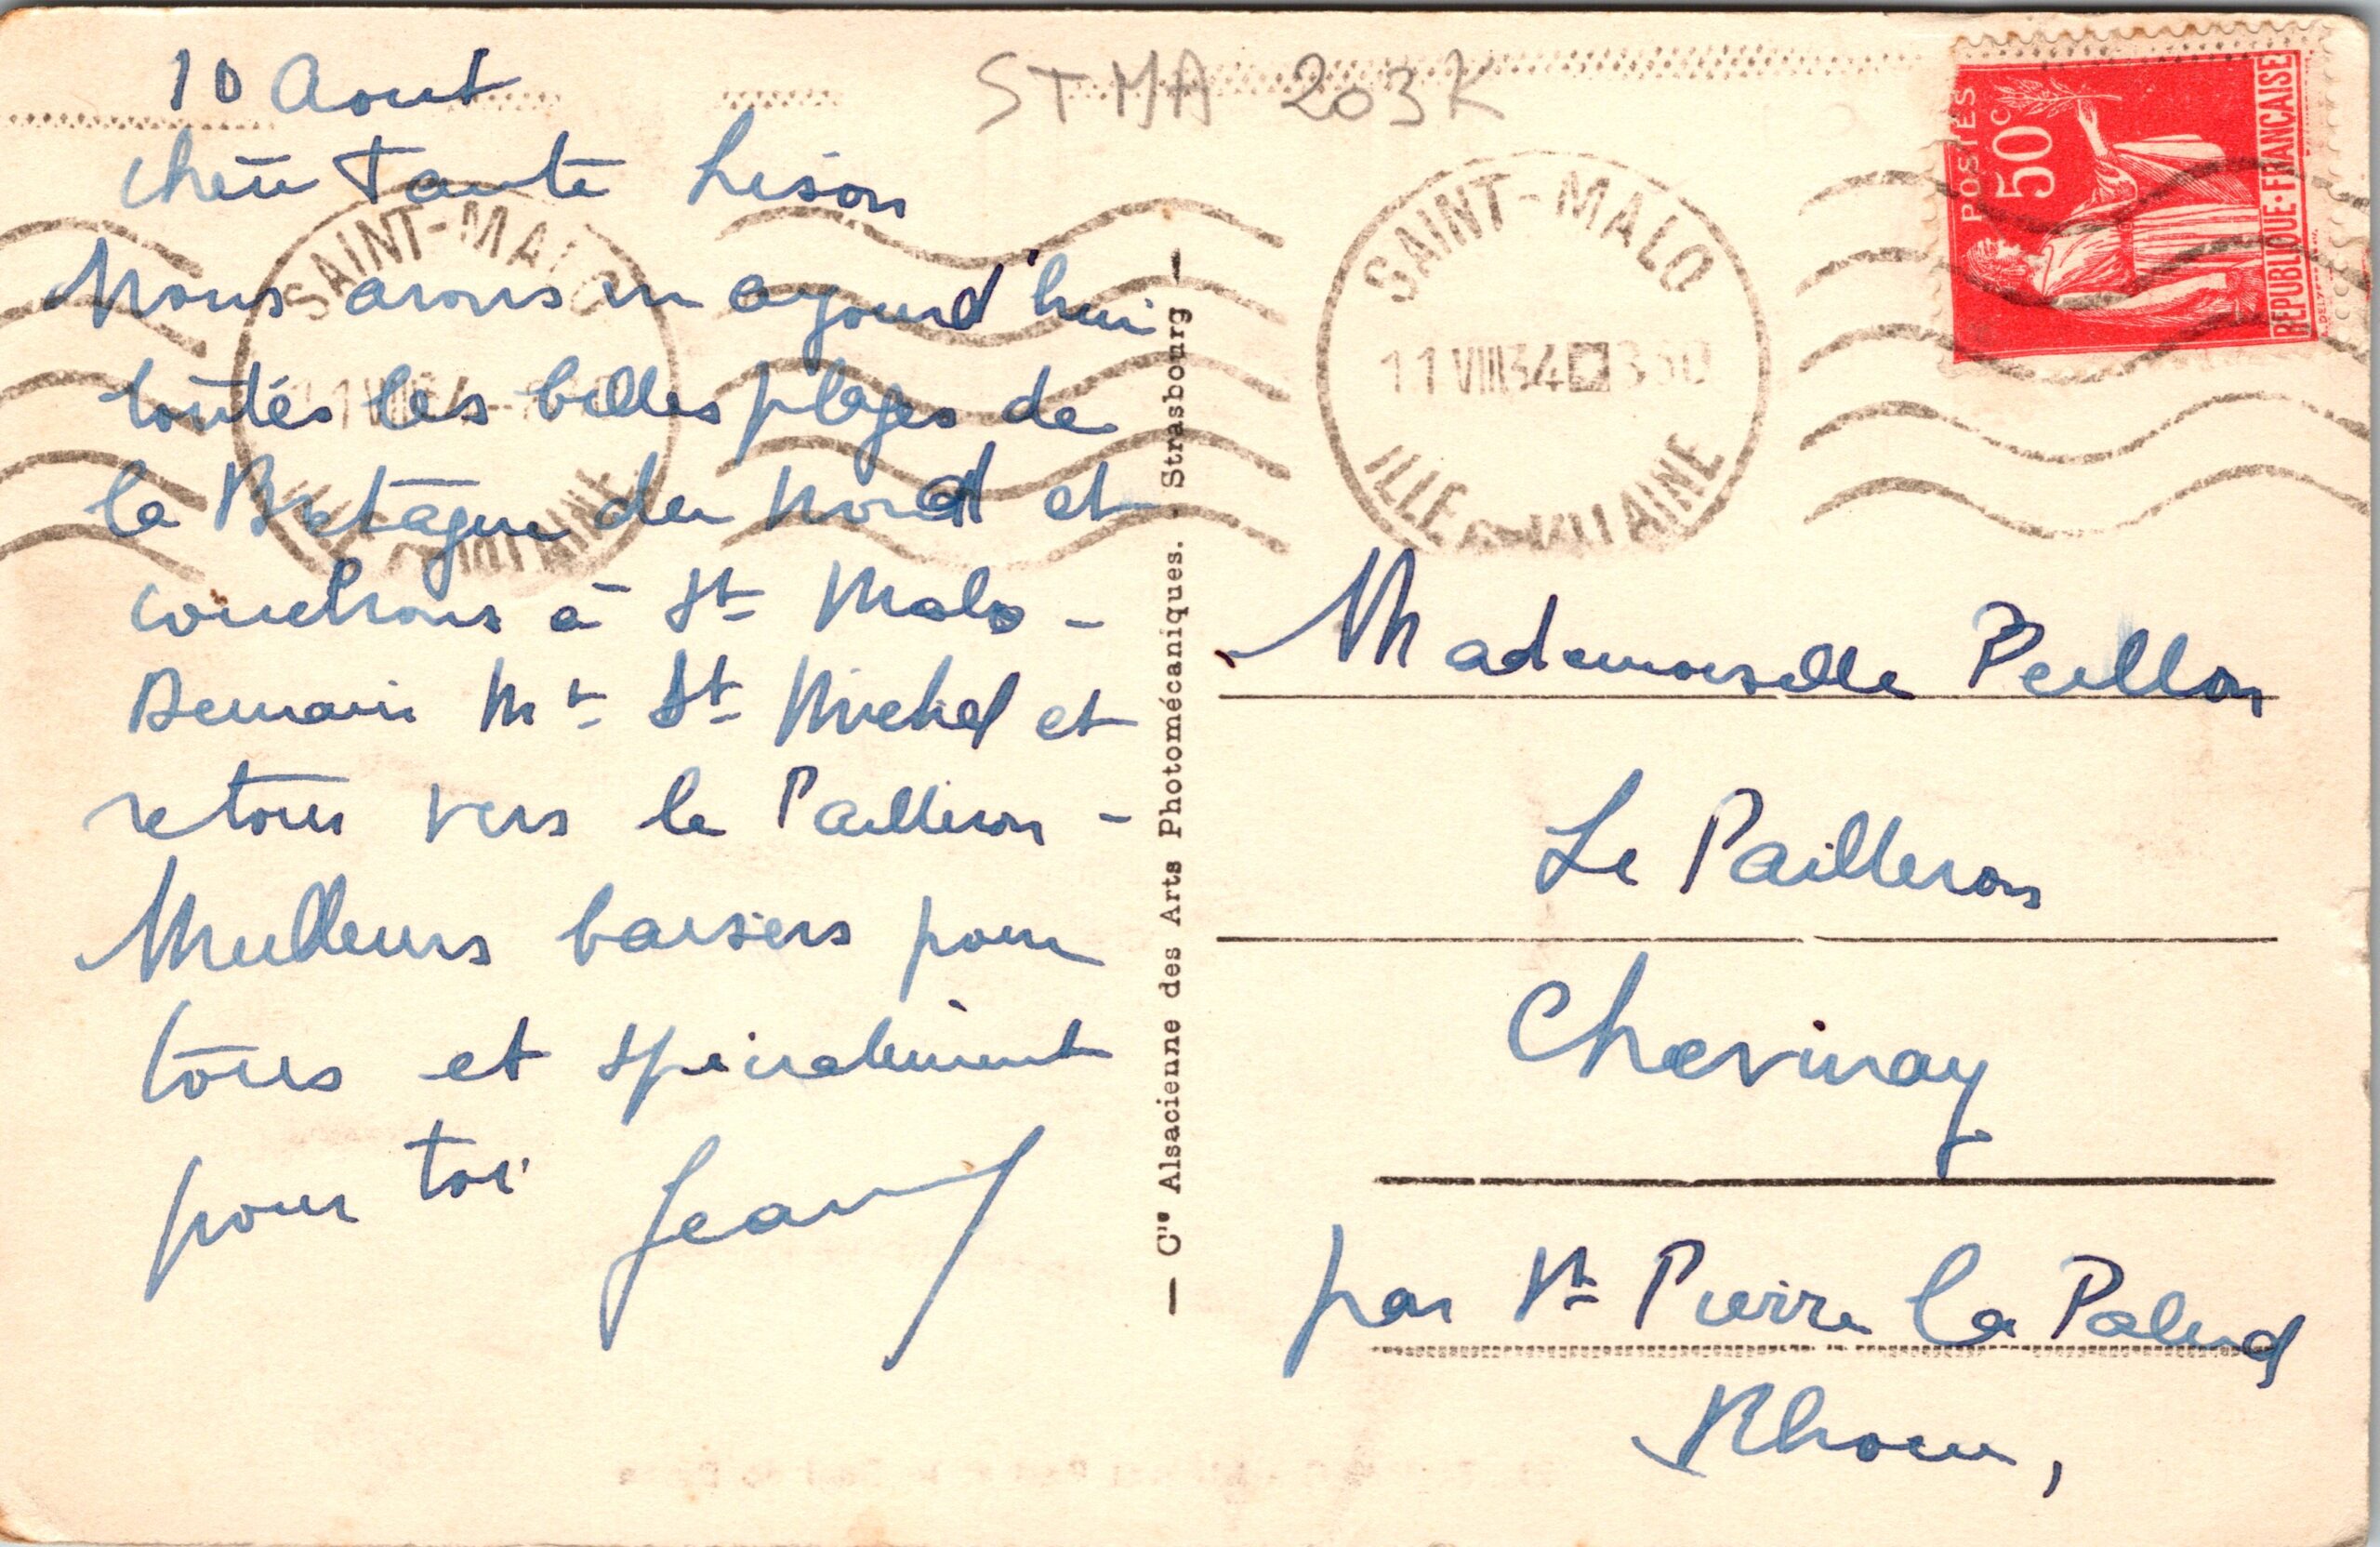 10 Aout
STMA 203K
chère Tante Lison
Nous avons vu aujourd'hui
toutes les belles plages de
la Bretagne du Nord et
couchons à St Malo -
Demain Mt St Michel et
retour vers le Pailleron -
Meilleurs baisers pour
tous et spécialement
pour toi Jean
— Cie Alsacienne des Arts Photomécaniques. Strasbourg —
SAINT-MALO
ILLE-&-VILAINE
SAINT-MALO
11 VIII 34 330
ILLE-&-VILAINE
POSTES
50c
REPUBLIQUE·FRANÇAISE
Mademoiselle Peillon
Le Pailleron
Chevinay
par St Pierre la Palud
Rhone,